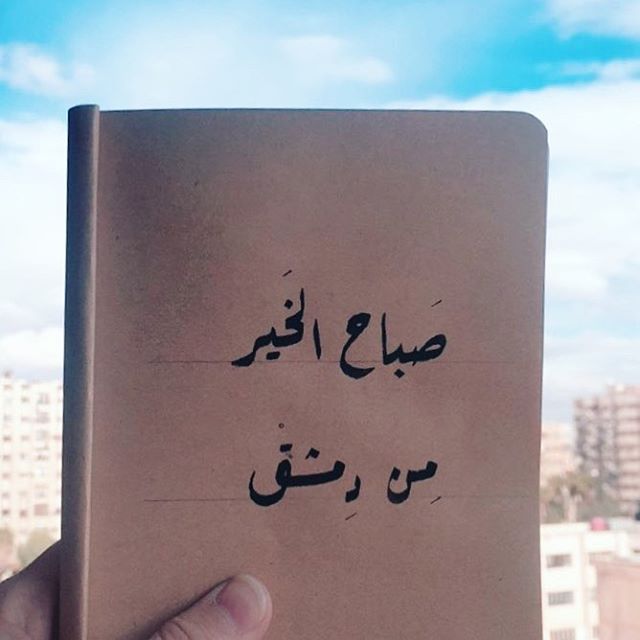 صَباح الخَير
مِن دِمشقْ